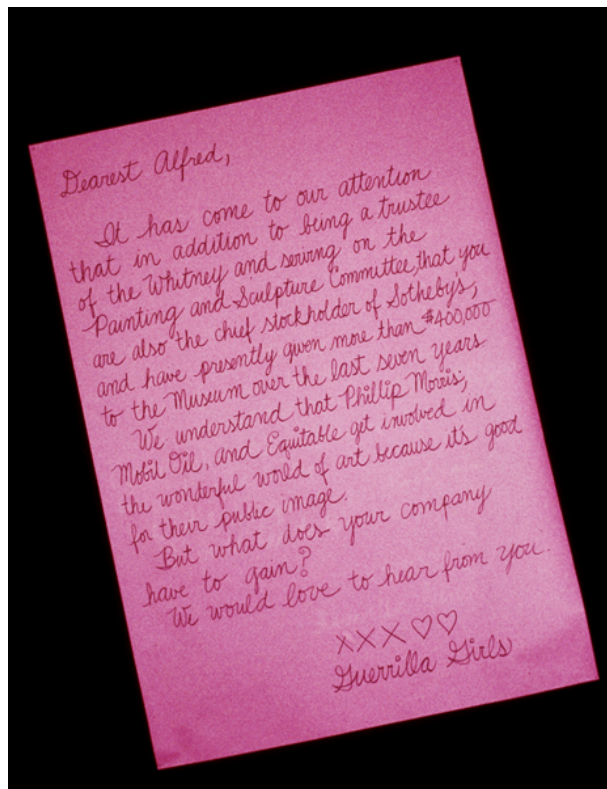 Dearest Alfred,
It has come to our attention
that in addition to being a trustee
of the Whitney and serving on the
Painting and Sculpture Committee, that you
are also the chief stockholder of Sotheby's,
and have presently given more than $400,000
to the Museum over the last seven years
We understand that Phillip Morris,
Mobil Oil, and Equitable get involved in
the wonterful world of art because its good
for their public image.
But what does your company
have to gain?
We would love to hear from you.
XXX♡♡
Guerrilla Girls